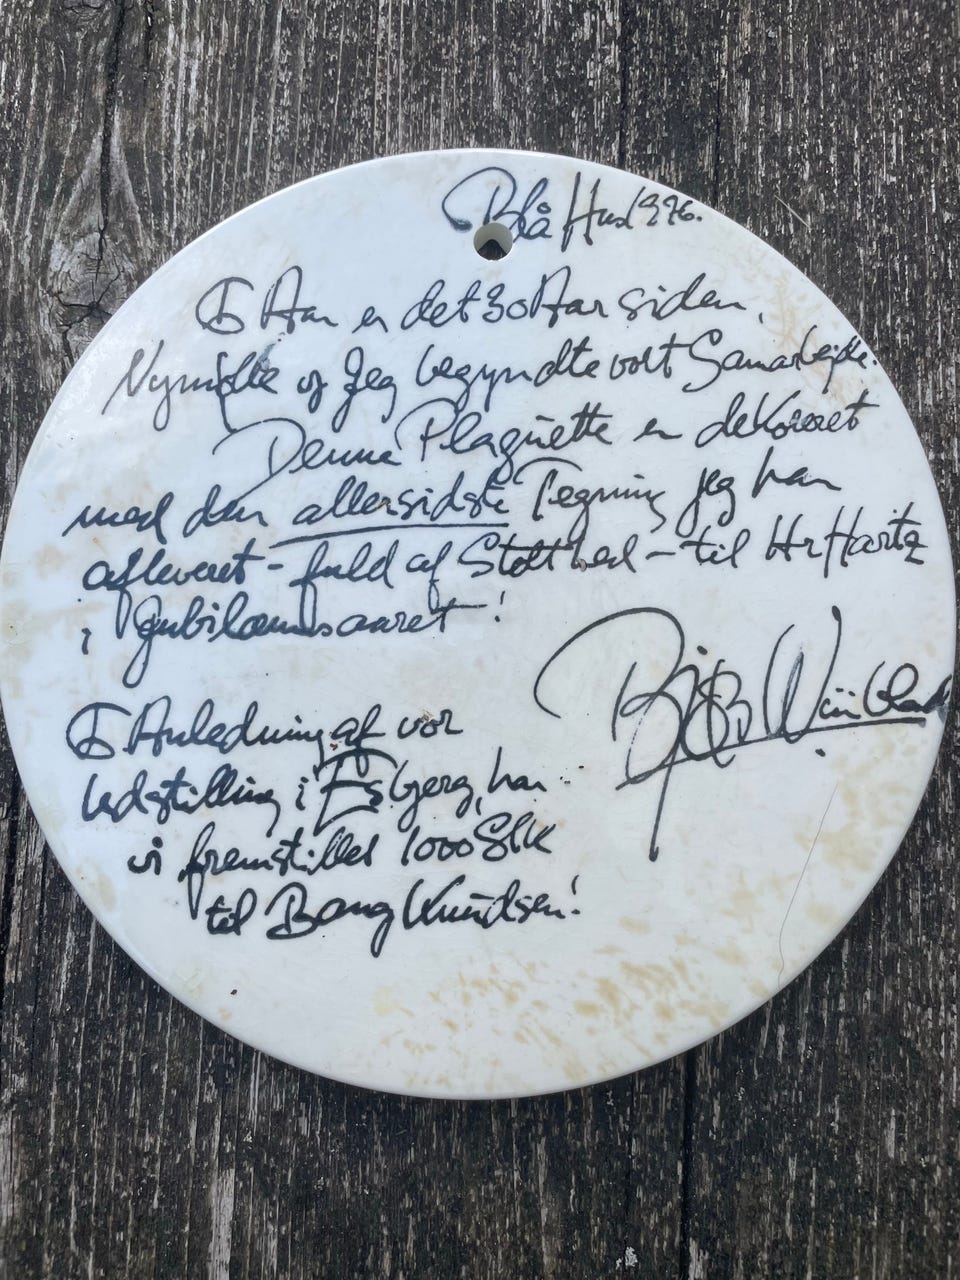 Blå Hus 1976.
I Aar er det 30 Aar siden,
Nymølle og Jeg begyndte vort Samarbejde.
Denne Plaquette er dekoreret
med den allersidste Tegning jeg har
afleveret - fuld af Stolthed - til Hr Hartz
i Jubilæumsaaret!
Bjørn Wiinblad
I Anledning af vor
Udstilling i Esbjerg, har
vi fremstillet 1000 Stk
til Bang Knudsen!